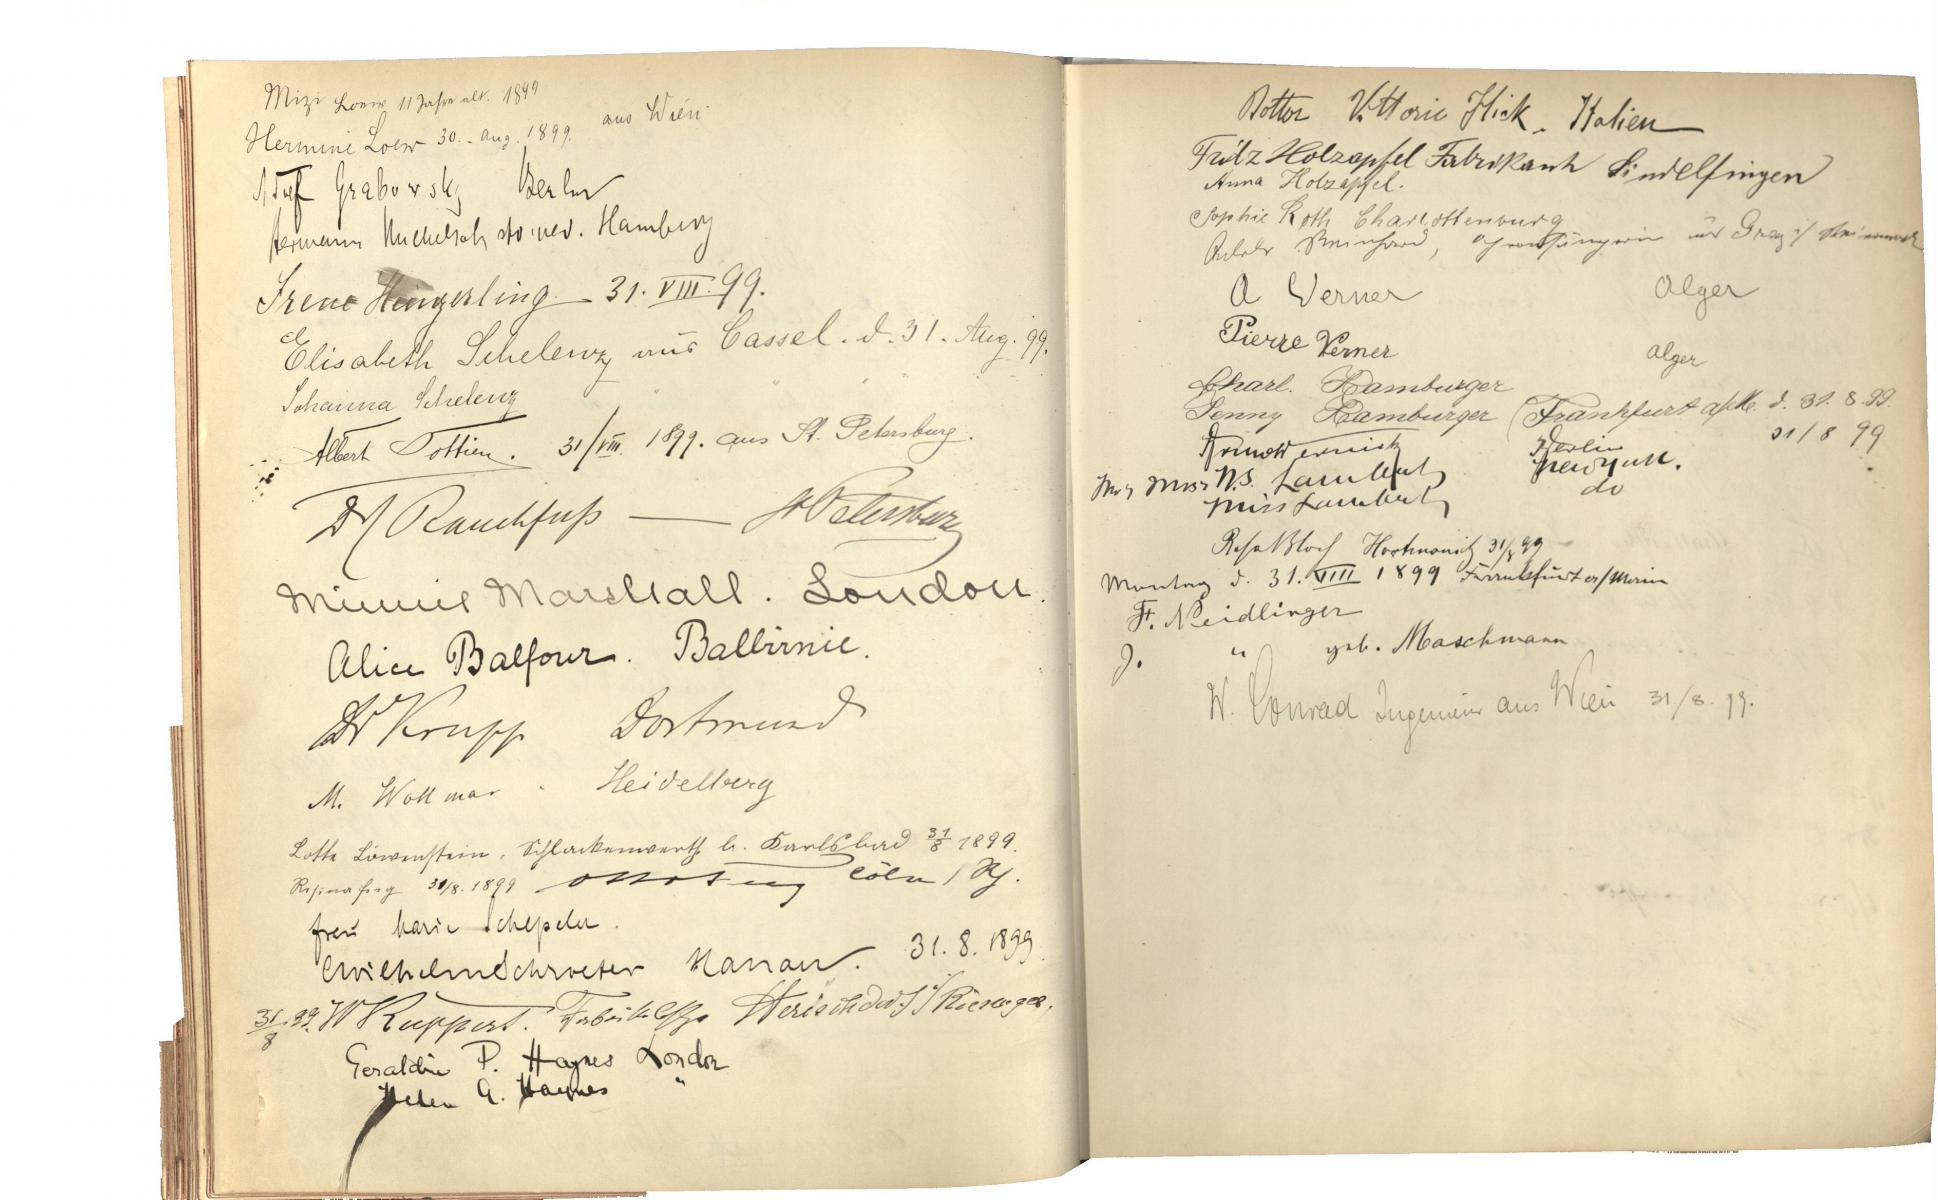 Mizi Loew 11 Jahre alt. 1899
Hermine Loew 30. Aug. 1899. aus Wien
Adolf Grabowsky Berlin
Hermann cand. med. Hamburg
Irene Hingerling 31. VIII. 99.
Elisabeth Schelenz aus Cassel. d. 31. Aug. 99.
Johanna Schelenz " " " "
Albert Tottien. 31/VIII. 1899. aus St. Petersburg.
Dr Rauchfuß — St Petersburg
Minnie Marshall. London.
Alice Balfour. Balbirnie.
Dr Krupp Dortmund
M. Wollmar. Heidelberg
Lotte Löwenstein, Schlackenwerth b. Karlsbad 31/8 1899.
31/8. 1899 Cöln / Rh.
Frau Marie
Wilhelm Schroeter Hanau. 31. 8. 1899.
31/8. 99. W Ruppert.
Geraldine P. Haynes London
Helen A. Haynes "
Dottor Vittorio Italien
Fritz Holzapfel Fabrikant Sindelfingen
Anna Holzapfel.
Sophie Roth Charlottenburg
Reinhard, aus Graz
A Verner Alger
Pierre Verner Alger
Charl. Hamburger
Jenny Hamburger (Frankfurt a/M. d. 31. 8. 99.
Arnold Berlin 31/8 99
Mr & Mrs N.S. Lambert New York.
Miss Lambert do
Rosa Bloch 31/8 99
Montag d. 31. VIII 1899 Frankfurt a/Main
F. Neidlinger
J. " geb. Maschmann
W. Conrad Ingenieur aus Wien 31/8. 99.